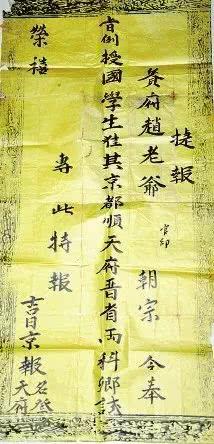 捷報
贵府趙老爺官印朝宗今奉
旨例授國學生在其京都順天府晋省两科鄉試
專此特報
榮禧
吉日京報
天府